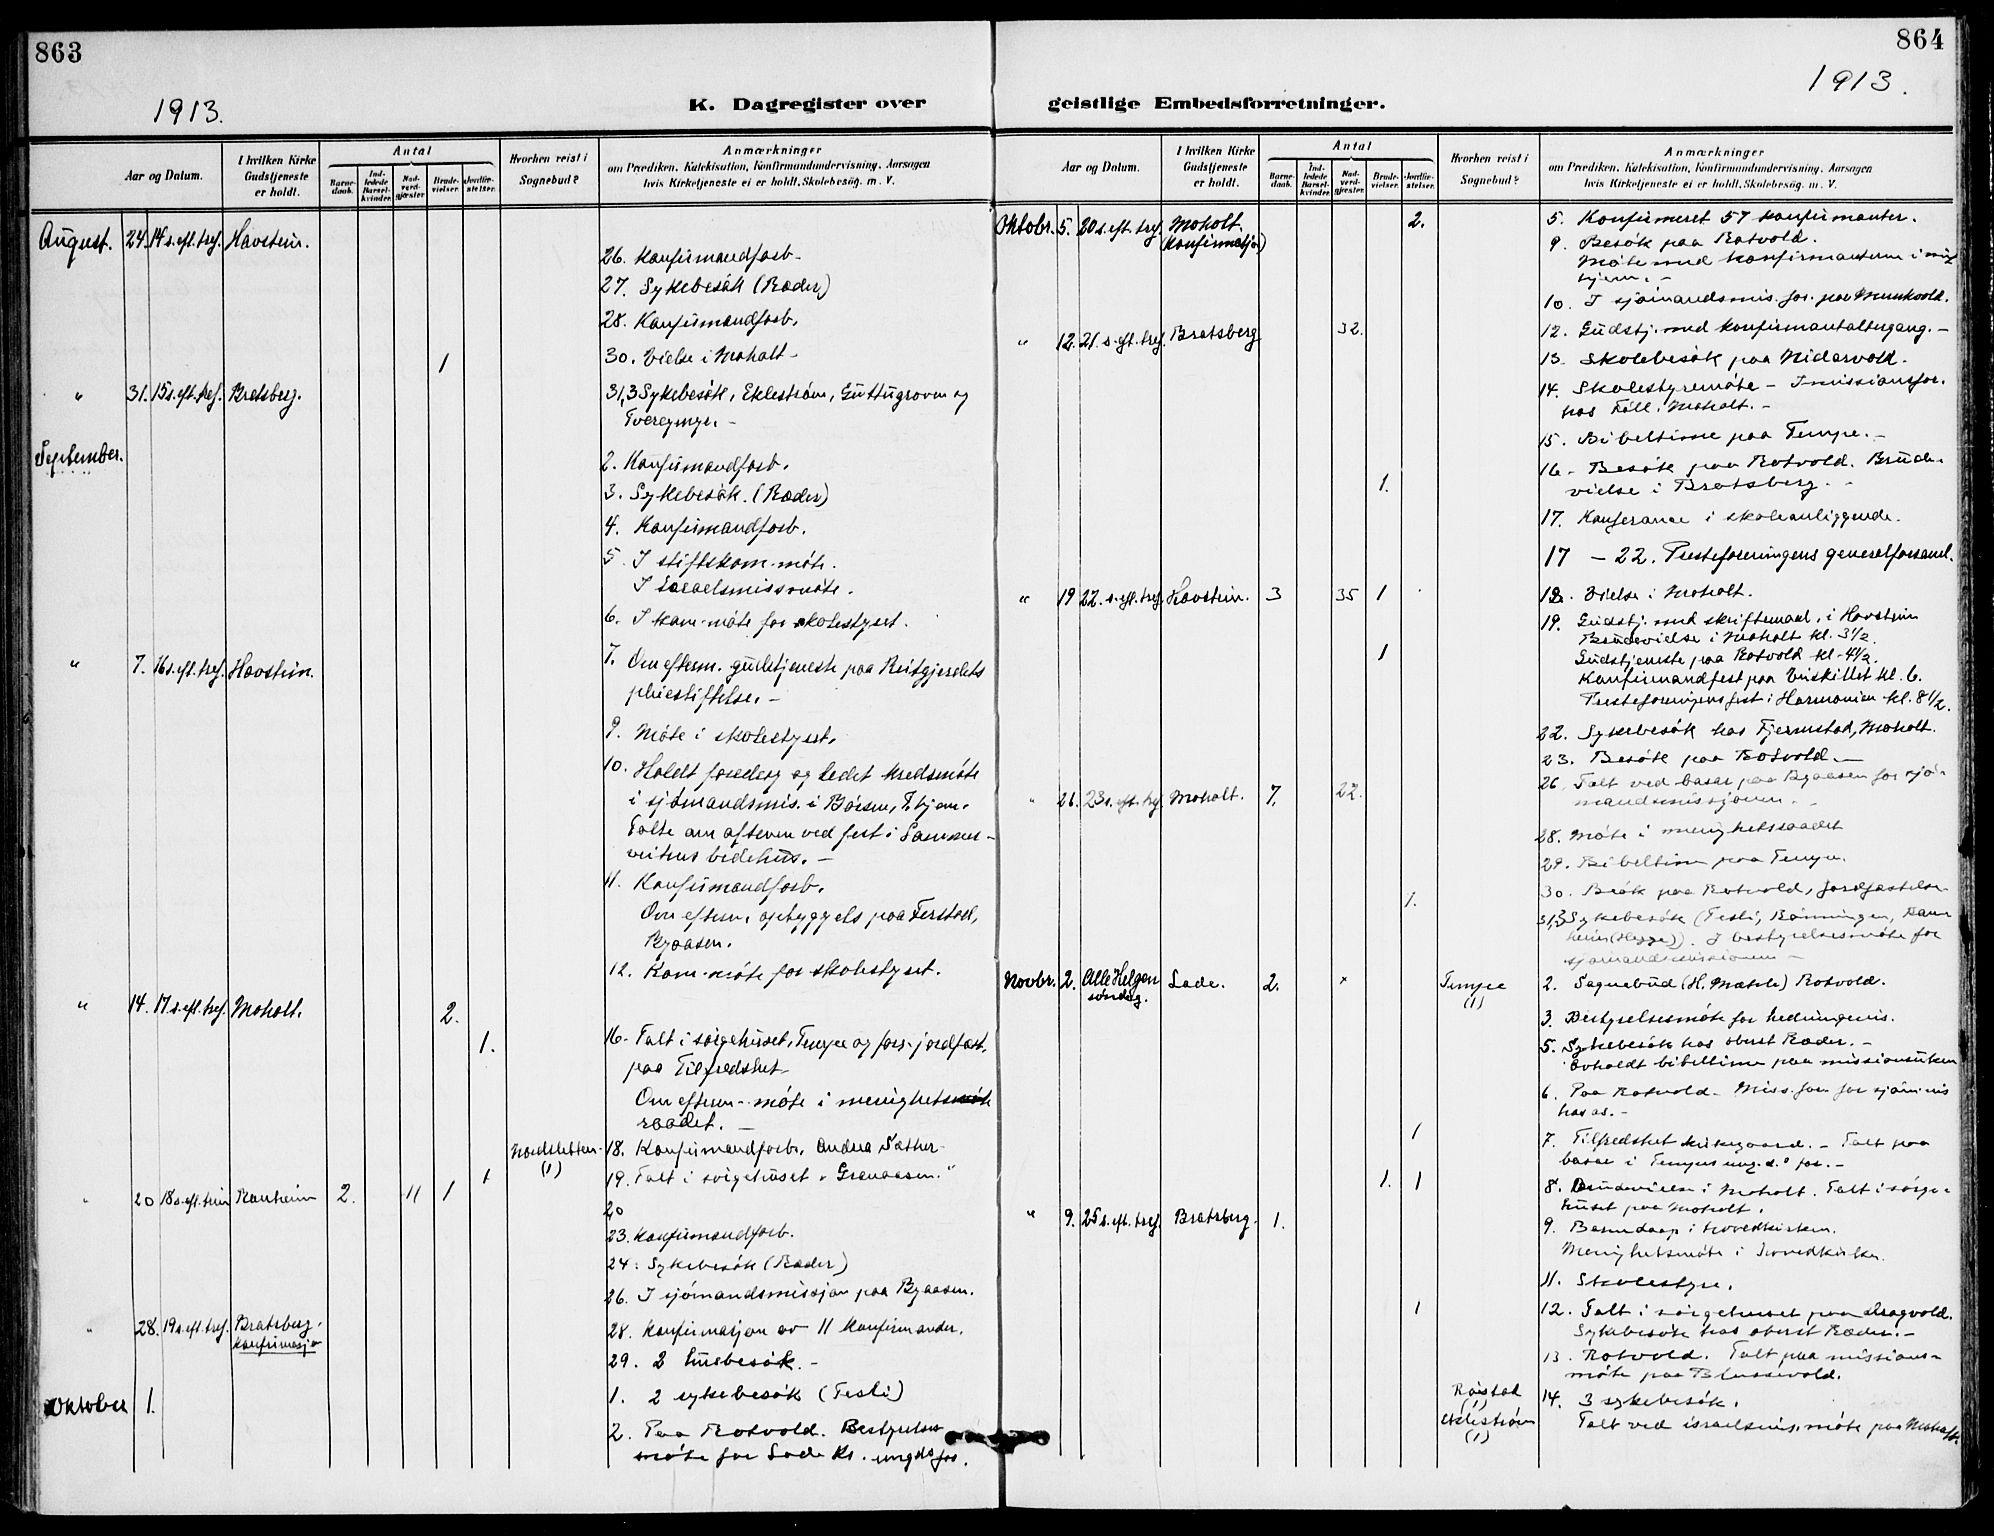 863
1913.
K. Dagregister over
Aar og Datum.
I hvilken Kirke Gudstjeneste er holdt.
Antal
Barne-daab.
Ind-ledede Barsel-kvinder.
Nad-verd-gjæster.
Brude-vielser.
Jordfæ-stelser.
Hvorhen reist i Sognebud?
Anmærkninger
om Prædiken, Katekisation, Konfirmandundervisning, Aarsagen
hvis Kirketjeneste ei er holdt, Skolebesøg, m. V.
August. 24. 14 s. eft. tref. Havstein.
26. Konfirmandforb.
27. Sykebesök (Ræder)
28. Konfirmandforb.
1 30. Vielse i Moholt -
" 31. 15 s. eft. tref. Bratsberg. 31, 3 Sykebesök, Eklestrøm, Guttugroven og
September.
2. Konfirmandforb.
3. Sykebesök. (Ræder)
4. Konfirmandforb.
5. I stiftskom. möte.
I Israelsmissmöte.
6. I kom. möte for skolestyret.
" 7. 16 s. eft. tref. Havstein. 7. Om efterm. gudstjeneste paa Reitgjerdets
pleiestiftelse. -
9. Möte i skolestyret.
10. Holdt foredrag og ledet kredsmöte
i sjömandsmis. i Börsen, Trhjem.
Talte om aftenen ved fest i Sanner-
veitens bedehus. -
11. Konfirmandforb.
Om efterm. opbyggels paa Ferstad,
Byaasen.
12. Kom. möte for skolestyret.
" 14. 17 s. eft. tref. Moholt. 2.
1. 16. Talt i sörgehuset, Tempe og forr. jordfæst.
paa Tilfredshet
Om efterm. - möte i menighets
raadet. -
Nardsletten (1) 18. Konfirmandforb. Andrea Sæther
1 19. Talt i sörgehuset "Granaasen."
" 20 18 s. eft. trin Ranheim 2. 11 1
20
23. Konfirmandforb.
24. Sykebesök (Ræder)
26. I sjömandsmissjon paa Byaasen.
" 28. 19 s. eft. tref. Bratsberg. Konfirmasjo 28. Konfirmasjon av 11 konfirmander.
29. 2 husbesök. -
Oktober 1. 1. 2 sykebesök (Tesli)
2. Paa Rotvold. Bestyrelses
möte for Lade Ks. ungds for.
864
1913.
geistlige Embedsforretninger.
Aar og Datum.
I hvilken Kirke Gudstjeneste er holdt.
Antal
Barne-daab.
Ind-ledede Barsel-kvinder.
Nad-verd-gjæster.
Brude-vielser.
Jordfæ-stelser.
Hvorhen reist i Sognebud?
Anmærkninger
om Prædiken, Katekisation, Konfirmandundervisning, Aarsagen
hvis Kirketjeneste ei er holdt, Skolebesøg, m. V.
Oktobr. 5. 20 s. eft. tref. Moholt. (Konfirmasjon) 2. 5. Konfirmeret 57 konfirmanter.
9. Besök paa Rotvold.
Möte med konfirmanterne i mit
hjem. -
10. I sjömandsmis. for. paa Munkvold.
" 12. 21. s. eft. tref. Bratsberg 32. 12. Gudstj. med konfirmantaltergang. -
13. Skolebesök paa Nidarvold.
14. Skolestyremöte - I missionsfor.
hos Föll. Moholt. -
15. Bibeltime paa Tempe. -
16. Besök paa Rotvold. Brude-
1. vielse i Bratsberg. -
17. Konferanse i skoleanliggende.
17 - 22. Presteforeningens generalforsaml.
" 19 22. s. eft. tref. Havstein. 3 35 1 18. Vielse i Moholt.
19. Gudstj. med skriftemaal, i Havstein
Brudevielse i Moholt kl. 3 1/2.
1 Gudstjeneste paa Rotvold kl. 4 1/2.
Konfirmandfest paa kl. 6.
Presteforeningens fest i Harmonien kl. 8 1/2.
22. Sykebesök hos Fjermstad, Moholt.
23. Besök paa Rotvold -
" 26. 23 s. eft. tref. Moholt. 7. 22. 26. Talt ved basar paa Byaasen for sjö-
mandsmissjonen. -
28. Möte i menighetsraadet
29. Bibeltime paa Tempe.
1. 30. Besök paa Rotvold, jordfæstelse
31, 3 Sykebesök (Tesli, Rönningen, Ran-
heim (Hegge)). I bestyrelsesmöte for
sjömandsmissionen -
Novbr. 2. Alle Helgen söndag. Lade. 2. x Tempe (1) 2. Sognebud (H. Mæhle) Rotvold.
3. Bestyrelsesmöte for hedningemis.
5. Sykebesök hos oberst Ræder. -
Avholdt bibeltime paa missionsuken
6. Paa Rotvold - Miss. for. for sjöm. mis
hos os. -
1 7. Tilfredshet kirkegaard. - Talt paa
basar i Tempes ung.d.s for. -
1. 1 8. Brudevielse i Moholt. Talt i sörge-
huset paa Moholt.
" 9. 25 s. eft. tref. Bratsberg. 1. 9. Barnedaap i hovedkirken.
Menighetsmöte i hovedkirken.
11. Skolestyre.
1 12. Talt i sörgehuset paa Dragvold.
Sykebesök hos oberst Ræder. -
13. Rotvold. Talt paa missions-
möte paa Blussuvold.
Röistad (1) 14. 3 sykebesök.
Ekleström (1) Talt ved israelsmis. möte paa Moholt.